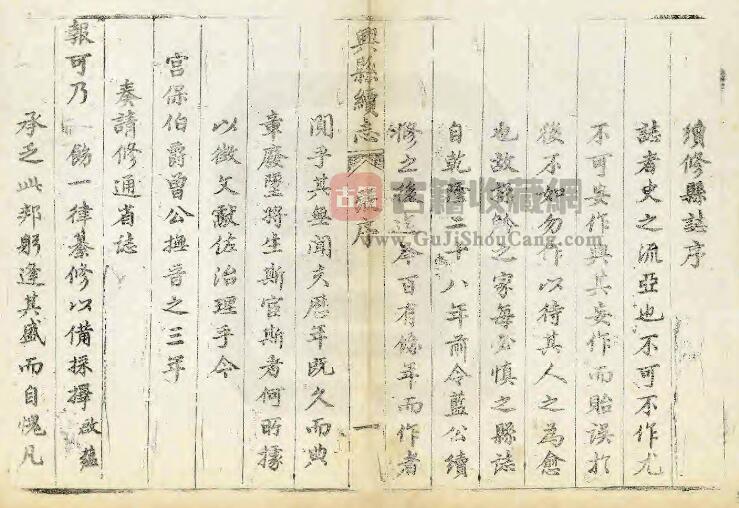 續修縣誌序
誌者史之流亞也不可不作尤
不可妄作與其妄作而貽誤於
後不如勿作以待其人之為愈
也故 之家每必慎之縣誌
自乾隆二十八年前令藍公續
修之後 今百有餘年而作者
興縣續志 序 一
聞乎其無聞夫歷年既久而典
章廢墜將生斯官斯者何所據
以徵文獻佐治理乎今
宮保伯爵曾公撫晉之三年
奏請修通省誌
報可乃 飭一律纂修以備採擇啟蘊
承乏此邦躬逢其盛而自愧凡
古籍收藏網
www.GuJiShouCang.com